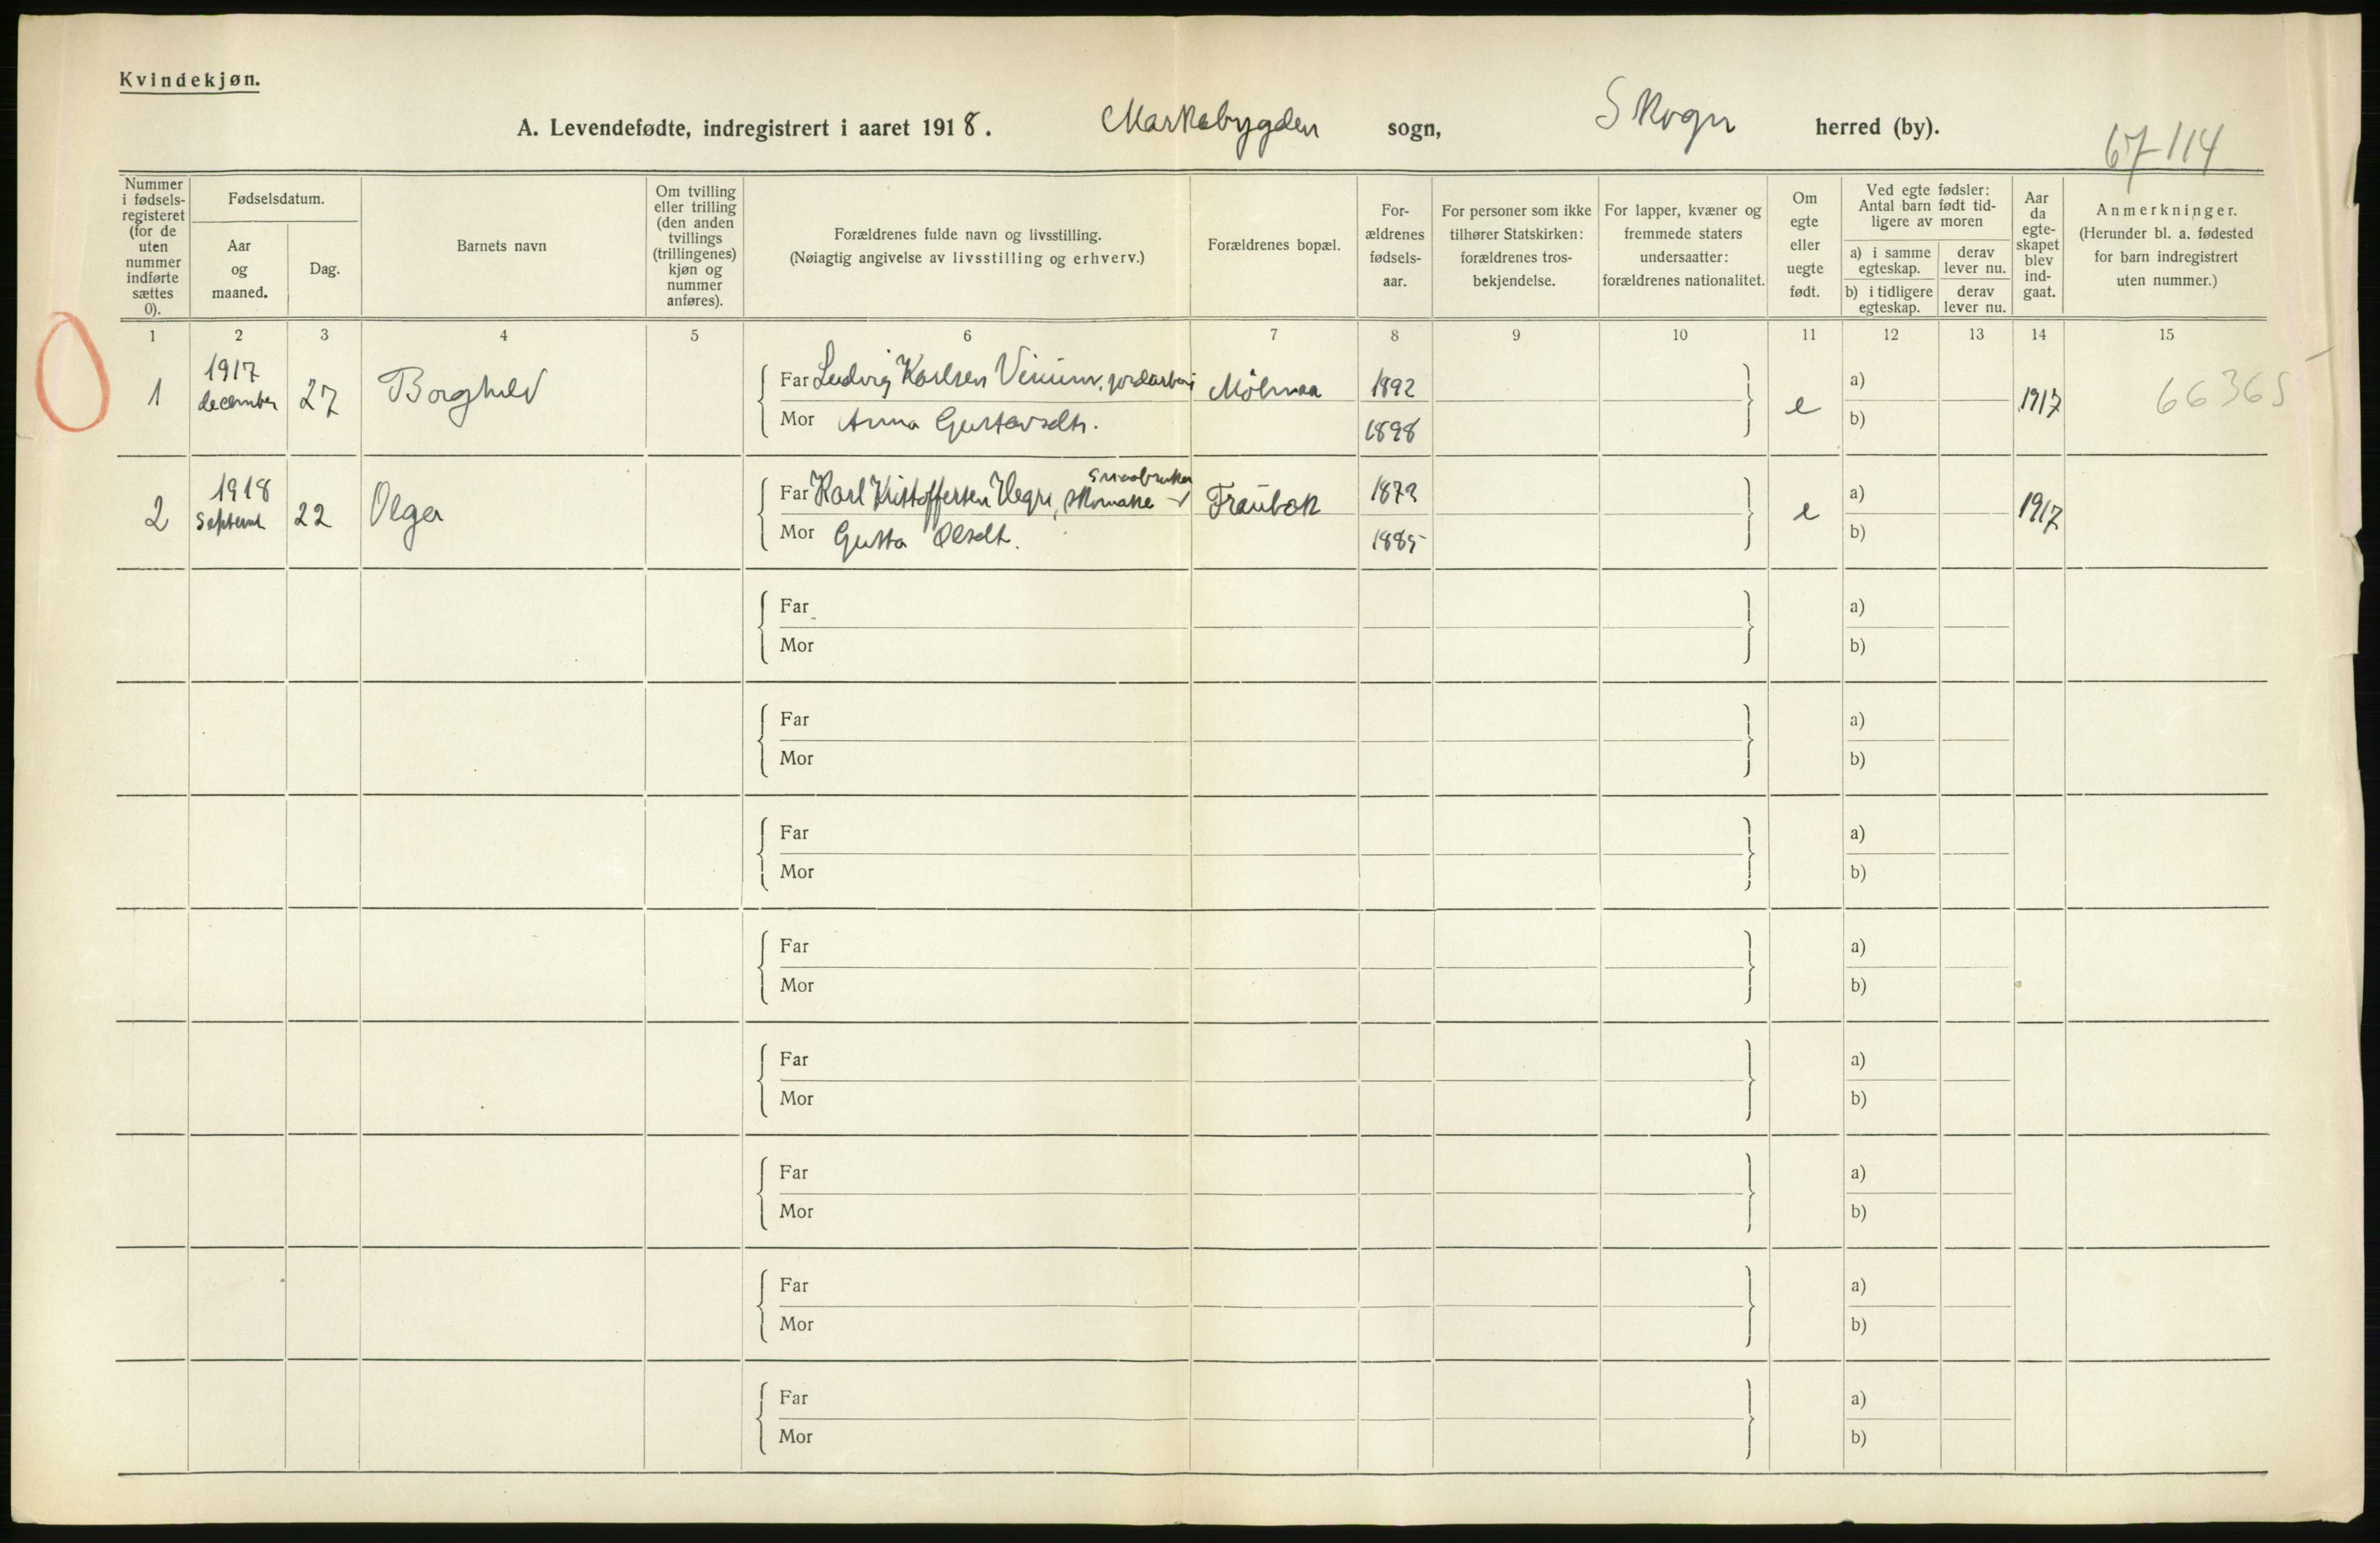 Kvindekjøn.
A. Levendefødte, indregistrert i aaret 1918. Markabygden sogn, Skogn herred (by).
67-114
Nummer i fødsels-registeret (for de uten nummer indførte sættes 0).
Fødselsdatum.
Aar og maaned.
Dag.
Barnets navn
Om tvilling eller trilling (den anden tvillings (trillingenes) kjøn og nummer anføres).
Forældrenes fulde navn og livsstilling.
(Nøiagtig angivelse av livsstilling og erhverv.)
Forældrenes bopæl.
For-ældrenes fødsels-aar.
For personer som ikke tilhører Statskirken: forældrenes tros-bekjendelse.
For lapper, kvæner og fremmede staters undersaatter: forældrenes nationalitet.
Om egte eller uegte født.
Ved egte fødsler: Antal barn født tid-ligere av moren
a) i samme egteskap.
derav lever nu.
b) i tidligere egteskap.
derav lever nu.
Aar da egte-skapet blev ind-gaat.
Anmerkninger.
(Herunder bl. a. fødested for barn indregistrert uten nummer.)
1 2 3 4 5 6 7 8 9 10 11 12 13 14 15
1 1917 december 27 Borghild Far Ludvig Karlsen Mölnaa 1892 e a) 1917 66365
Mor Anna Gustavsdtr. 1898 b)
Smaabruker
2 1918 Septemb 22 Olga Far Karl Kristoffersen Hegre, skomaker 1873 e a) 1917
Mor Gusta Olsdt. 1885 b)
Far a)
Mor b)
Far a)
Mor b)
Far a)
Mor b)
Far a)
Mor b)
Far a)
Mor b)
Far a)
Mor b)
Far a)
Mor b)
Far a)
Mor b)